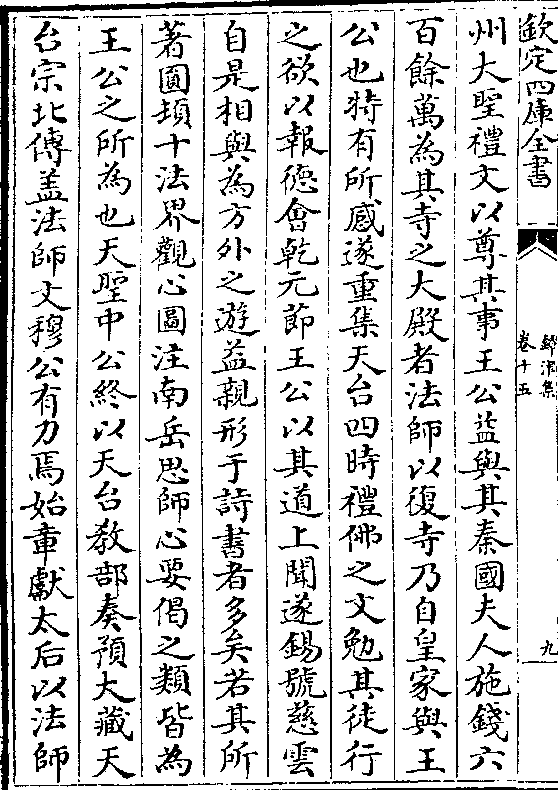 欽定四庫全書
鐔津集
卷十五
九
州大聖禮文以尊其事王公益與其秦國夫人施錢六
百餘萬為其寺之大殿者法師以復寺乃自皇家與王
公也特有所感遂重集天台四時禮佛之文勉其徒行
之欲以報德會乾元節王公以其道上聞遂錫號慈雲
自是相與為方外之遊益親形于詩書者多矣若其所
著圓頓十法界觀心圖注南岳思師心要偈之類皆為
王公之所為也天聖中公終以天台教部奏預大藏天
台宗北傳盖法師文穆公有力焉始章獻太后以法師